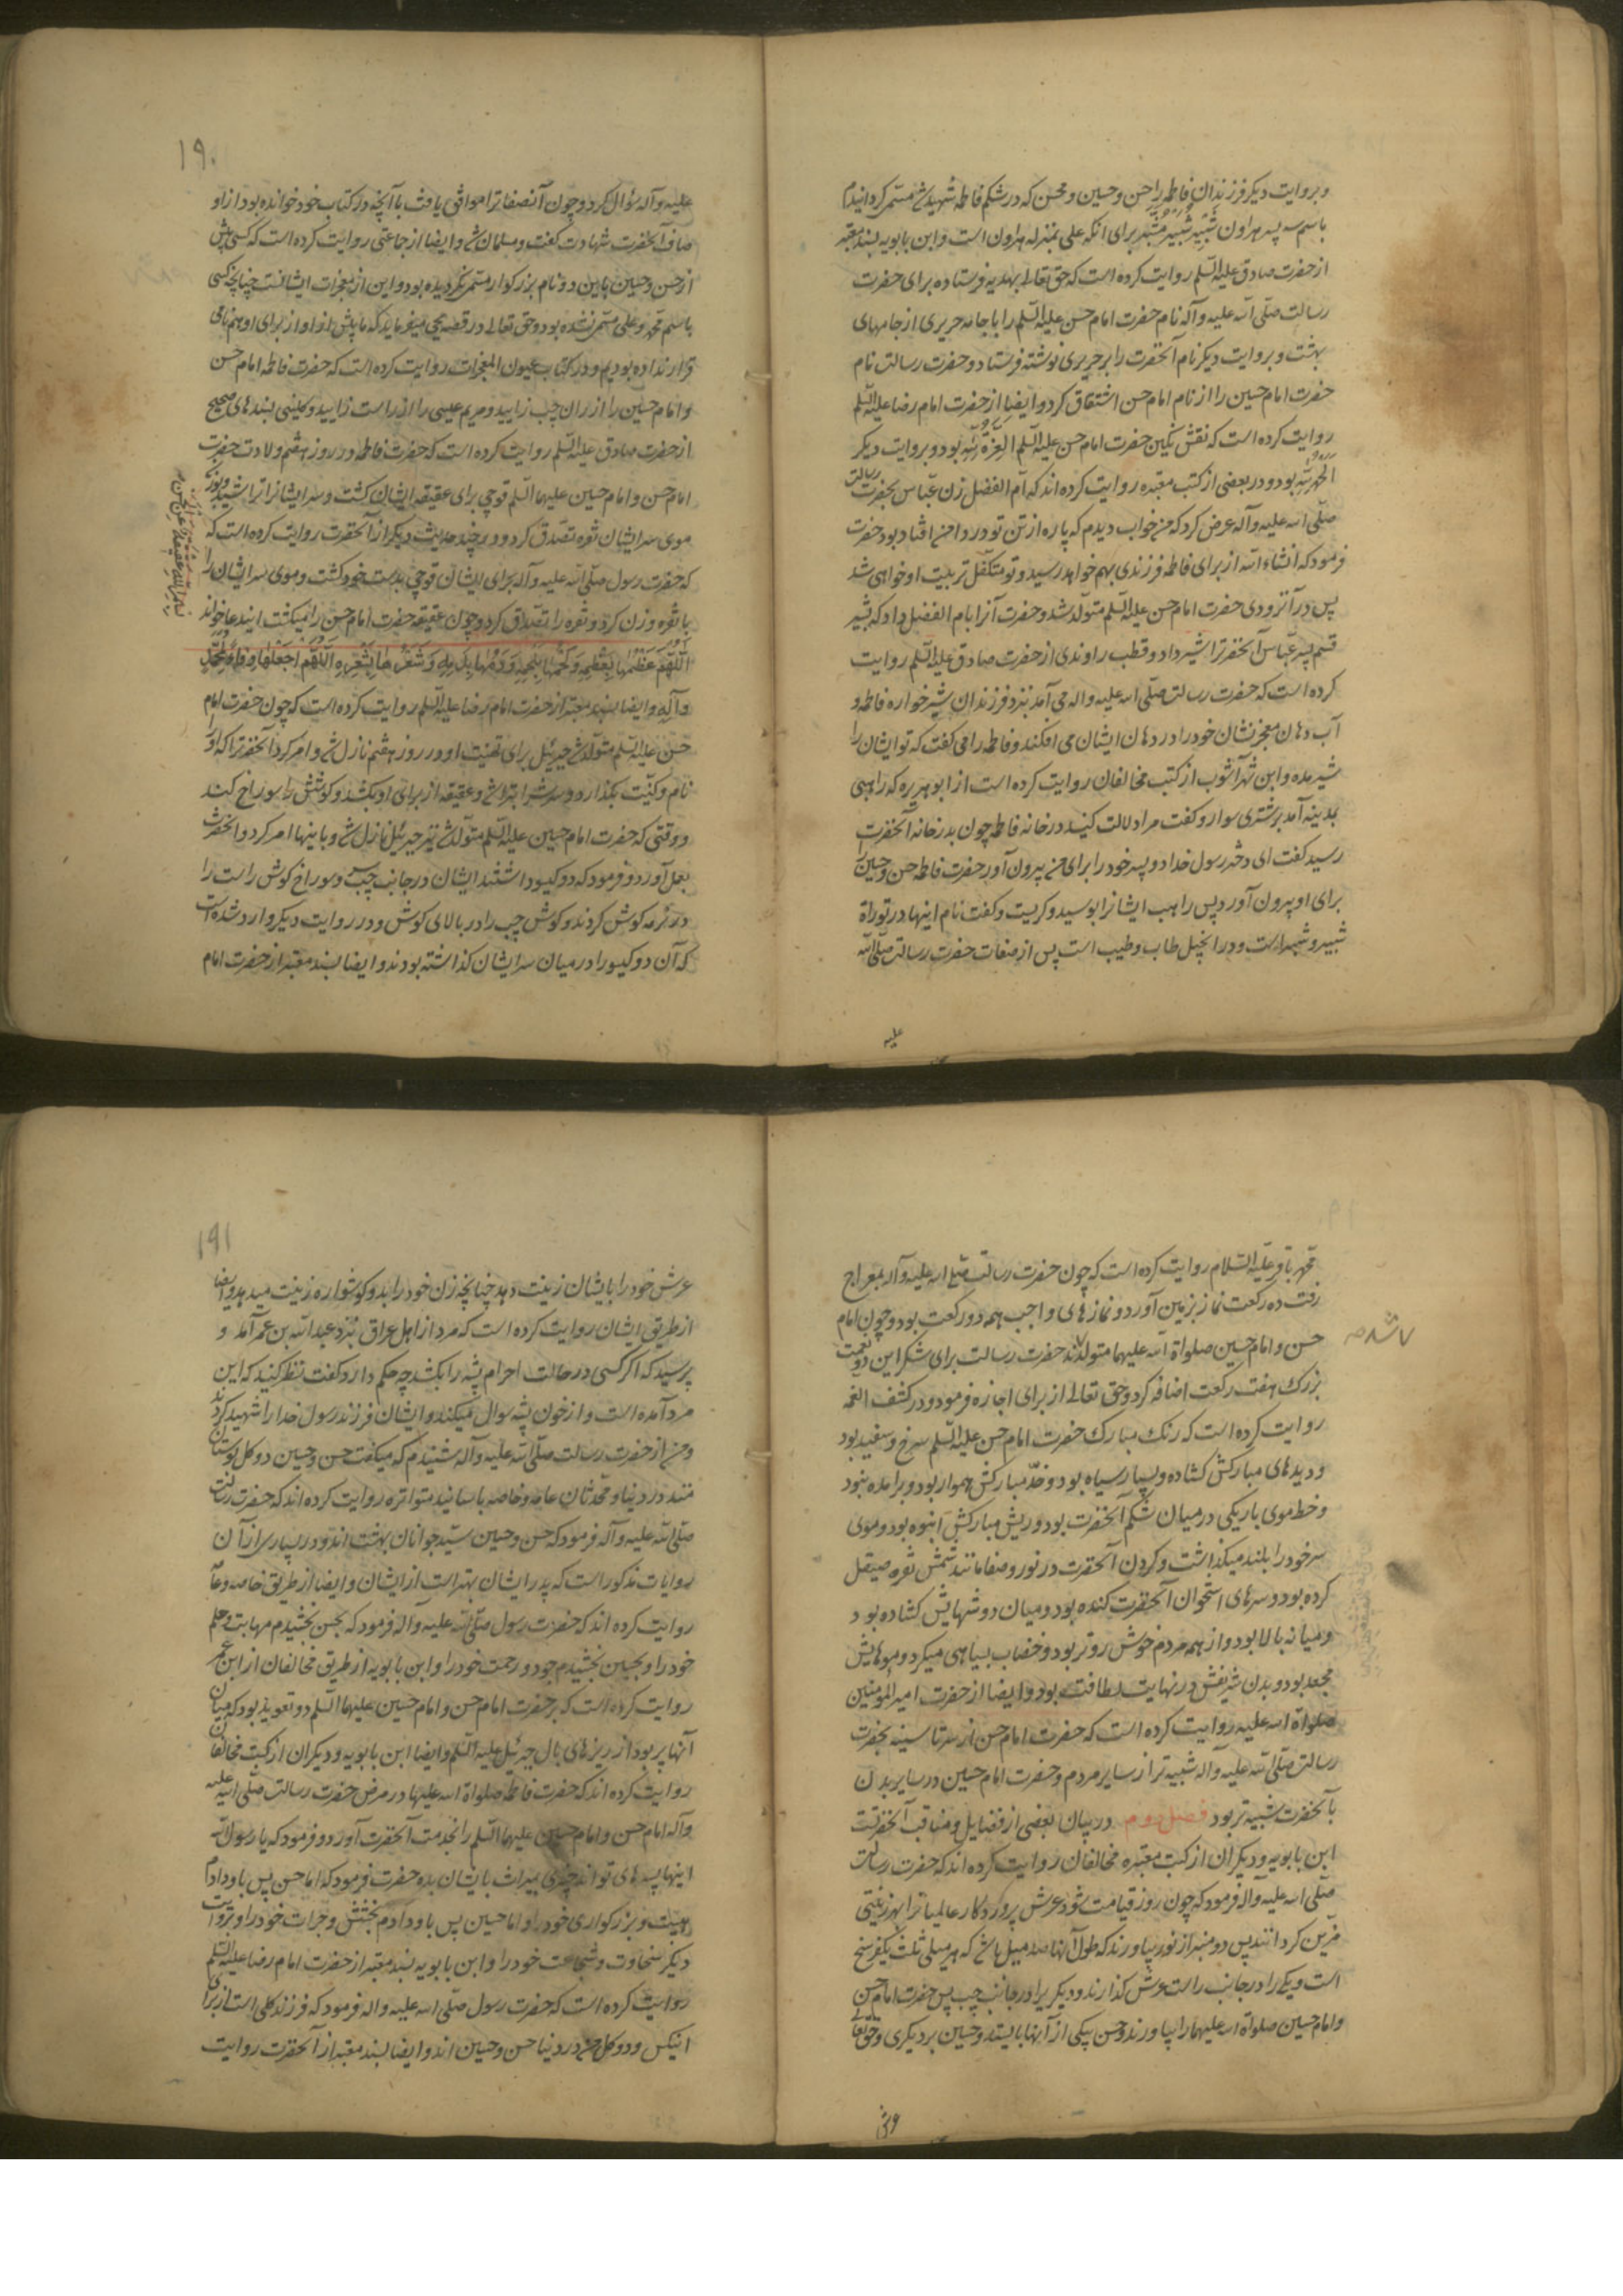 و بروایت دیکر فرزندان فاطمه را حسن و حسین و محسن که در شکم فاطمه شهید شد مسمّی کردانیدم
باسم سه پسر هرون شَبَّر و شُبَیر و مُشَبَّر برای انکه علی بمنزله هرون است و ابن بابویه بسند معتبر
از حضرت صادق علیه السّلم روایت کرده است که حق تعالی بهدیه فرستاده برای حضرت
رسالت صلّی الله علیه و آله نام حضرت امام حسن علیه السّلم را با جامه حریری از جامهای
بهشت و بروایت دیکر نام آنحضرت را بر حریری نوشته فرستاد و حضرت رسالت نام
حضرت امام حسین را از نام امام حسن اشتقاق کرد و ایضا از حضرت امام رضا علیه السّلم
روایت کرده است که نقش نکین حضرت امام حسن علیه السّلم العِزّةُ لِلّهِ بود و بروایت دیکر
الحمدُ لِلّهِ بود و در بعضی از کتب معتبره روایت کرده اند که ام الفضل زن عبّاس بحضرت رسالت
صلّی الله علیه و آله عرض کرد که من خواب دیدم که پاره از تن تو در دامن من افتاد بود حضرت
فرمود که انشاء الله از برای فاطمه فرزندی بهم خواهد رسید و تو متکفّل تربیت او خواهی شد
پس در آنزودی حضرت امام حسن علیه السّلم متولّد شد و حضرت آنرا بام الفضل داد که بشیر
قسم پسر عبّاس آنحضرترا شیر داد و قطب راوندی از حضرت صادق علیه السّلم روایت
کرده است که حضرت رسالت صلّی الله علیه و اله می آمد نزد فرزندان شیرخواره فاطمه و
آب دهان معجزنشان خود را در دهان ایشان می افکند و فاطمه را می کفت که تو ایشان را
شیر مده و ابن شهرآشوب از کتب مخالفان روایت کرده است از ابو هریره که راهبی
بمدینه آمد بر شتری سوار و کفت مرا دلالت کنید در خانه فاطمه چون بدر خانه آنحضرت
رسید کفت ای دختر رسول خدا دو پسر خود را برای من بیرون آور حضرت فاطمه حسن و حسین را
برای او بیرون آورد پس راهب ایشانرا بوسید و کریست و کفت نام اینها در توراة
شبیر و شبر است و در انجیل طاب و طیب است پس از صفات حضرت رسالت صلّی الله
علیه
۱۹۰
علیه و آله سؤال کرد و چون آنصفاترا موافق یافت باآنچه در کتاب خود خوانده بود از او
صاف آنحضرت شهادت کفت و مسلمان شد و ایضا از جماعتی روایت کرده است که کسی پیش
از حسن و حسین باین دو نام بزرکوار مسمّی نکردیده بود و این از معجزات ایشانست چنانچه کسی
باسم محمّد و علی مسمّی نشده بود و حق تعالی در قصه یحیی میفرماید که ما پیش از او از برای او هم نامی
قرار نداده بودیم و در کتاب عیون المعجزات روایت کرده است که حضرت فاطمه امام حسن
و امام حسین را از ران چپ زایید و مریم عیسی را از راست زایید و کلینی بسندهای صحیح
از حضرت صادق علیه السّلم روایت کرده است که حضرت فاطمه در روز هفتم ولادت حضرت
امام حسن و امام حسین علیهما السّلم قوچی برای عقیقه ایشان کشت و سر ایشانرا تراشید و بوزن
موی سر ایشان نقره تصدّق کرد و در چند حدیث دیکر از آنحضرت روایت کرده است که
که حضرت رسول صلّی الله علیه و آله برای ایشان قوچی بدست خود کشت و موی سر ایشان را
با نقره وزن کرد و نقره را تصدّق کرد و چون عقیقه حضرت امام حسن را میکشت ایندعا خواند
بسم الله عقیقة عن الحسن
اللّهمّ عَظمُها بِعَظمِهِ وَ لَحمُها بِلَحمِهِ وَ دَمُها بِدَمِهِ وَ شَعرُها بِشَعرِهِ اللّهمّ اجعَلها وِقاءً لِمحمّدٍ
و آلِهِ و ایضا بسند معتبر از حضرت امام رضا علیه السّلم روایت کرده است که چون حضرت امام
حسن علیه السّلم متولّد شد جبرئیل برای تهنیت او در روز هفتم نازل شد و امر کرد آنحضرترا که او را
نام و کنیّت بکذارد و سرش را بتراشد و عقیقه از برای او بکشد و کوشش را سوراخ کند
و وقتی که حضرت امام حسین علیه السّلم متولّد شد نیز جبرئیل نازل شد و باینها امر کرد و آنحضرت
بعمل آورد و فرمود که دو کیسو داشتند ایشان در جانب چپ سر و سوراخ کوش راست را
در نرمه کوش کردند و کوش چپ را در بالای کوش و در روایت دیکر وارد شده است
که آن دو کیسو را در میان سر ایشان کذاشته بودند و ایضا بسند معتبر از حضرت امام
محمّد باقر علیه السّلام روایت کرده است که چون حضرت رسالت صلّی الله علیه و آله بمعراج
رفت ده رکعت نماز بزمین آورد و نمازهای واجب همه دو رکعت بود و چون امام
حسن و امام حسین صلواة الله علیهما متولّد شدند حضرت رسالت برای شکر این دو نعمت
بزرک هفت رکعت اضافه کرد و حق تعالی از برای اجازه فرمود و در کشف الغمه
روایت کرده است که رنک مبارک حضرت امام حسن علیه السّلم سرخ و سفید بود
و دیدهای مبارکش کشاده و بسیار سیاه بود و خدّ مبارکش هموار بود و برامده نبود
و خط موی باریکی در میان شکم آنحضرت بود و ریش مبارکش انبوه بود و موی
سر خود را بلند میکذاشت و کردن آنحضرت در نور و صفا مانند شمش نقره صیقل
کرده بود و سرهای استخوان آنحضرت کنده بود و میان دوشهایش کشاده بود
و میانه بالا بود و از همه مردم خوش روتر بود و خضاب بسیاهی میکرد و موهایش
مجعد بود و بدن شریفش در نهایت لطافت بود و ایضا از حضرت امیر المؤمنین
صلواة الله علیه روایت کرده است که حضرت امام حسن از سر تا سینه بحضرت
رسالت صلّی الله علیه و آله شبیه تر از سایر مردم و حضرت امام حسین در سایر بدن
بآنحضرت شبیه تر بود فصل دوم در بیان بعضی از فضایل و مناقب آنحضرتست
ابن بابویه و دیکران از کتب معتبره مخالفان روایت کرده اند که حضرت رسالت
صلّی الله علیه و آله فرمود که چون روز قیامت شود عرش پروردکار عالمیانرا بهر زینتی
مزین کردانند پس دو منبر از نور بیاورند که طول آنها صد میل باشد که هر میلی ثلث یکفرسخ
است و یکی را در جانب راست عرش کذارند و دیکریرا در جانب چپ پس حضرت امام حسن
و امام حسین صلواة الله علیهما را بیاورند و حسن بر یکی از آنها بایستد و حسین بر دیکری و حق تعالی
عرش
۱۹۱
عرش خود را بایشان زینت دهد چنانچه زن خود را بدو کوشواره زینت میدهد و ایضا
از طریق ایشان روایت کرده است که مرد از اهل عراق بنزد عبدالله بن عمر آمد و
پرسید که اکر کسی در حالت احرام پشه را بکشد چه حکم دارد کفت نظر کنید که این
مرد آمده است و از خون پشه سوال میکند و ایشان فرزند رسول خدا را شهید کردند
و من از حضرت رسالت صلّی الله علیه و آله شنیدم که میکفت حسن و حسین دو کل بوستان
منند در دنیا و محدّثان عامه و خاصه باسانید متواتره روایت کرده اند که حضرت رسالت
صلّی الله علیه و آله فرمود که حسن و حسین سیّد جوانان بهشت اند و در بسیاری از آن
روایات مذکور است که پدر ایشان بهتر است از ایشان و ایضا از طریق خاصه و عامه
روایت کرده اند که حضرت رسول صلّی الله علیه و آله فرمود که بحسن بخشیدم مهابت و حلم
خود را و بحسین بخشیدم جود و رحمت خود را و ابن بابویه از طریق مخالفان از ابن عمر
روایت کرده است که بر حضرت امام حسن و امام حسین علیهما السّلم دو تعویذ بود که میان
آنها پر بود از ریزهای بال جبرئیل علیه السّلم و ایضا ابن بابویه و دیکران از کتب مخالفان
روایت کرده اند که حضرت فاطمه صلواة الله علیها در مرض حضرت رسالت صلّی الله علیه
و آله امام حسن و امام حسین علیهما السّلم را بخدمت آنحضرت آورد و فرمود که یا رسول الله
اینها پسرهای تواند چیزی بمیراث بایشان بده حضرت فرمود که اما حسن پس باو دادم
هیبت و بزرکواری خود را و اما حسین پس باو دادم بخشش و جرات خود را و بروایت
دیکر سخاوت و شجاعت خود را و ابن بابویه بسند معتبر از حضرت امام رضا علیه السّلم
روایت کرده است که حضرت رسول صلّی الله علیه و اله فرمود که فرزند کلی است از برای
اینکس و دو کل من در دنیا حسن و حسین اند و ایضا بسند معتبر از آنحضرت روایت